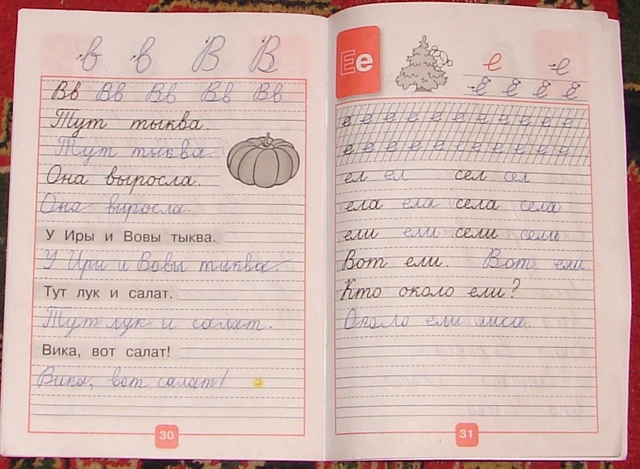 в в В В
Вв Вв Вв Вв Вв
Тут тыква.
Тут тыква
Она выросла.
Она выросла.
У Иры и Вовы тыква.
У Иры и Вовы тыква.
Тут лук и салат.
Тут лук и салат.
Вика, вот салат!
Вика, вот салат!
30
Ее
е е
ё ё ё ё
е е е е е е е е е е е е е
е е е е е е е е е е е е е
ел ел сел сел
ела ела села села
ели ели сели сели
Вот ели. Вот ели.
Кто около ели?
Около ели лиса.
31